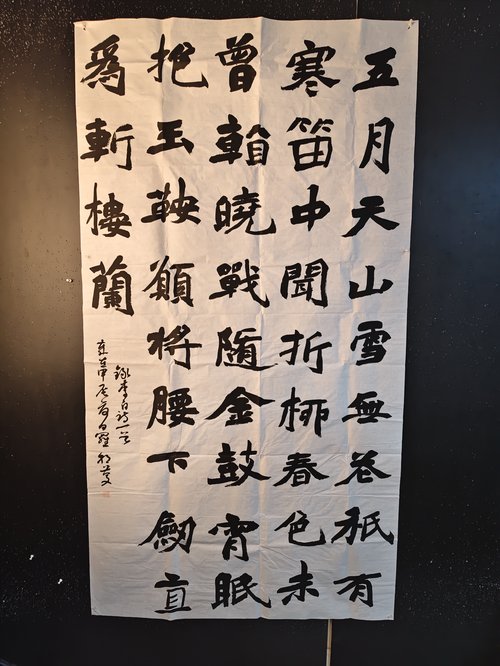 五月天山雪無花祇有
寒笛中聞折柳春色未
曾看曉戰隨金鼓宵眠
抱玉鞍願將腰下劍直
爲斬樓蘭
錄李白詩一首
甲辰